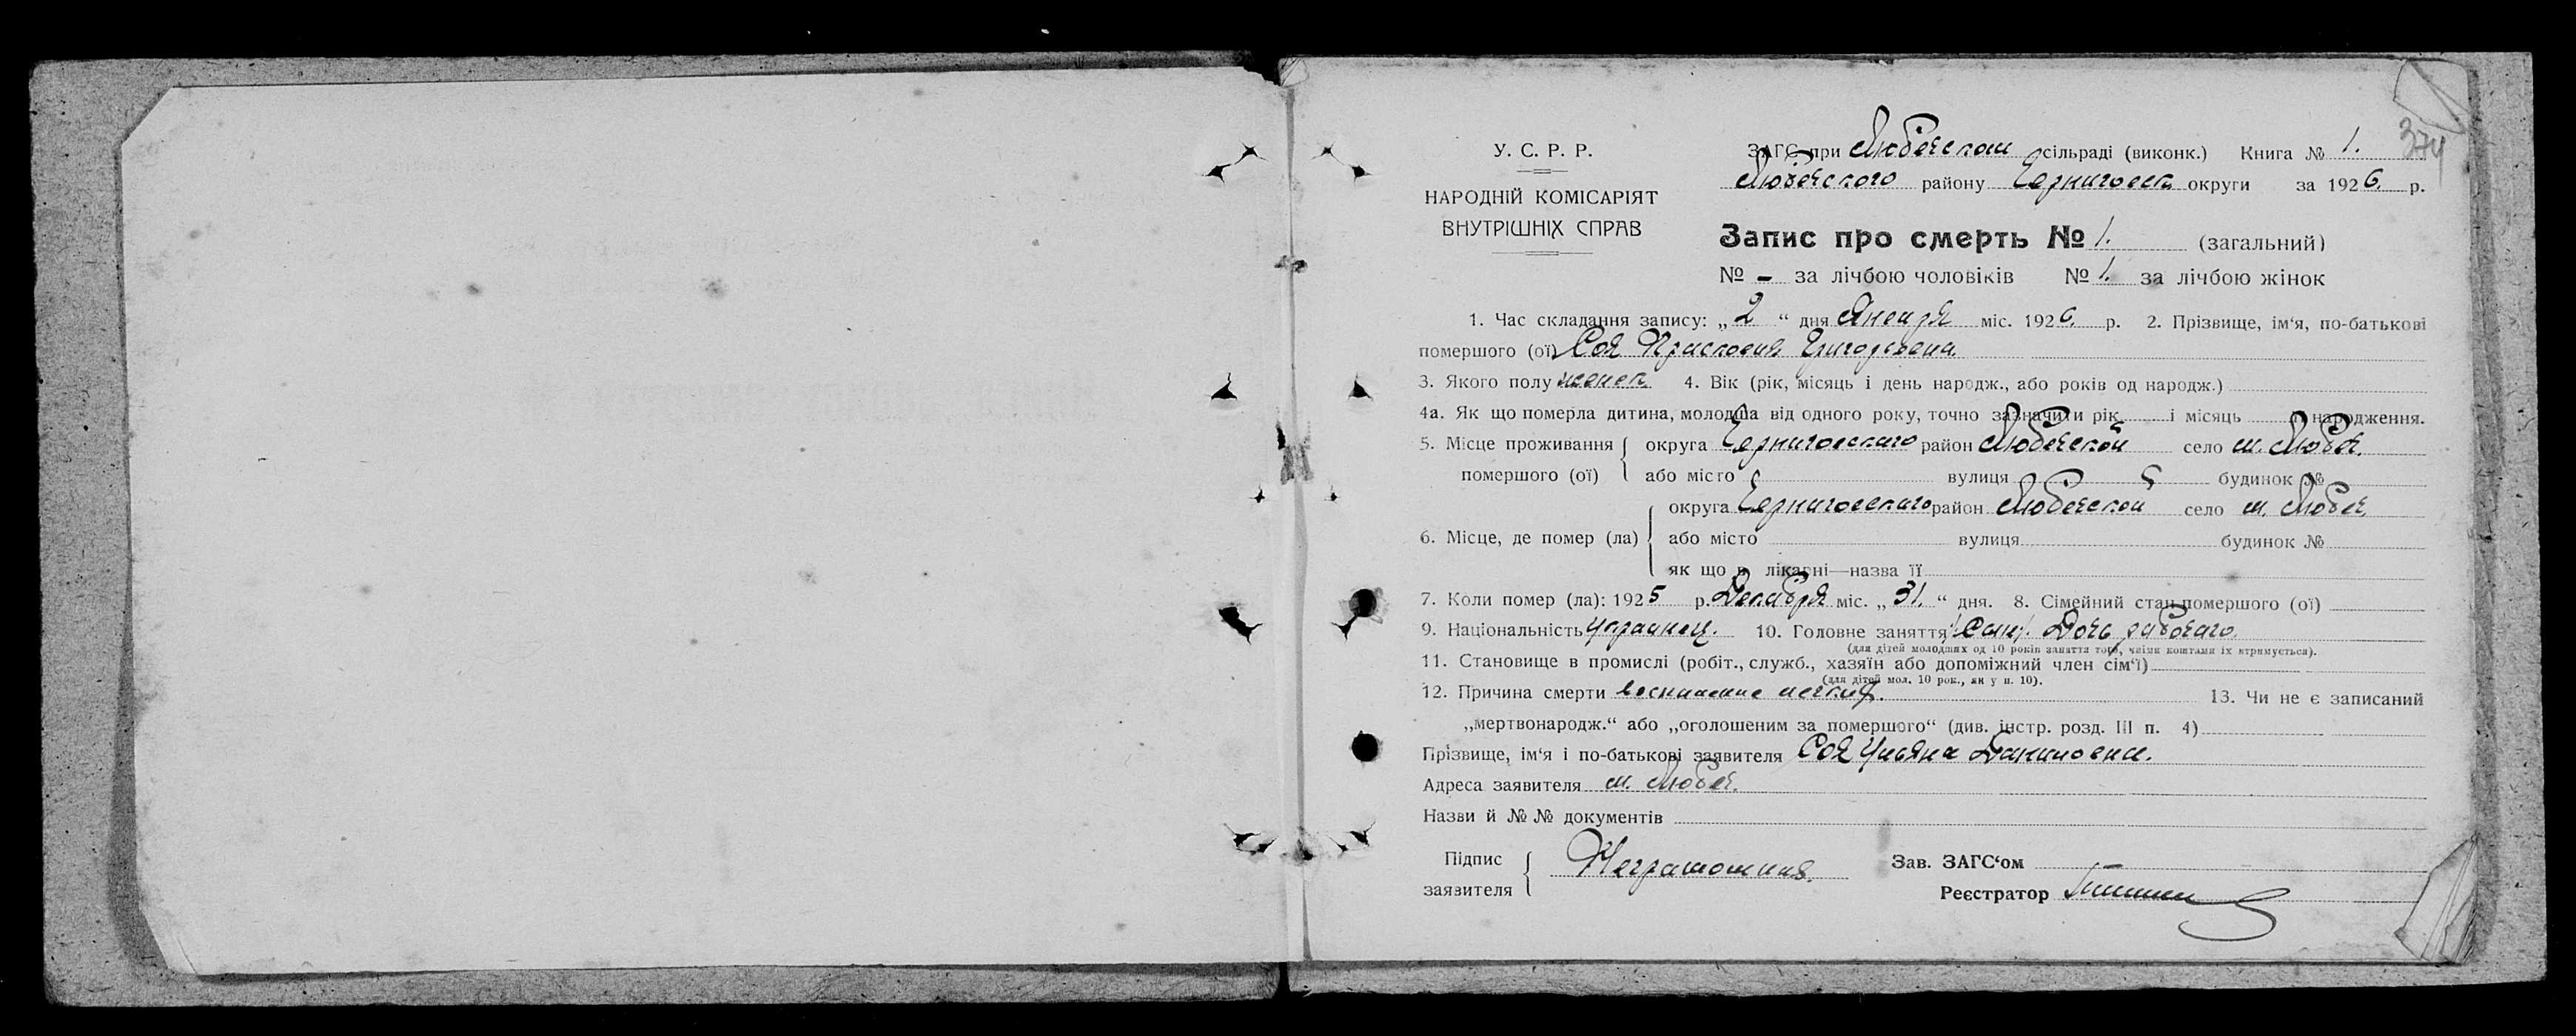 У. С. Р. Р.
НАРОДНІЙ КОМІСАРІЯТ
ВНУТРІШНІХ СПРАВ
ЗАГС при Любечском сільраді (виконк.) Книга № 1. 374
Любечского району Черниговск округи за 1926 р.
Запис про смерть № 1. (загальний)
№ - за лічбою чоловіків № 1. за лічбою жінок
1. Час складання запису: „2“ дня Января міс. 1926. р. 2. Прізвище, ім‘я, по-батькові
помершого (ої) Соя Прасковия Григорьевна
3. Якого полу женск. 4. Вік (рік, місяць і день народж., або років од народж.)
4а. Як що померла дитина, молодша від одного року, точно зазначити рік і місяць народження.
5. Місце проживання округа Черниговскаго район Любечской село м. Любеч.
помершого (ої) або місто вулиця будинок №
округа Черниговскаго район Любечской село м. Любеч.
6. Місце, де помер (ла) або місто вулиця будинок №
як що в лікарні—назва її
7. Коли помер (ла): 1925 р. Декабря міс. „31.“ дня. 8. Сімейний стан помершого (ої)
9. Національність Украинец. 10. Головне заняття Дочь рабочаго.
(для дітей молодших од 10 років заняття того, чиїми коштами їх втримується).
11. Становище в промислі (робіт., служб., хазяїн або допоміжний член сім‘ї)
(для дітей мол. 10 рок., як у п. 10).
12. Причина смерти воспаление легких. 13. Чи не є записаний
„мертвонародж.“ або „оголошеним за помершого“ (див. інстр. розд. III п. 4)
Прізвище, ім‘я і по-батькові заявителя Соя Ульяна Даниловна.
Адреса заявителя м. Любеч.
Назви й № № документів
Підпис заявителя Неграмотная. Зав. ЗАГС‘ом
Реєстратор